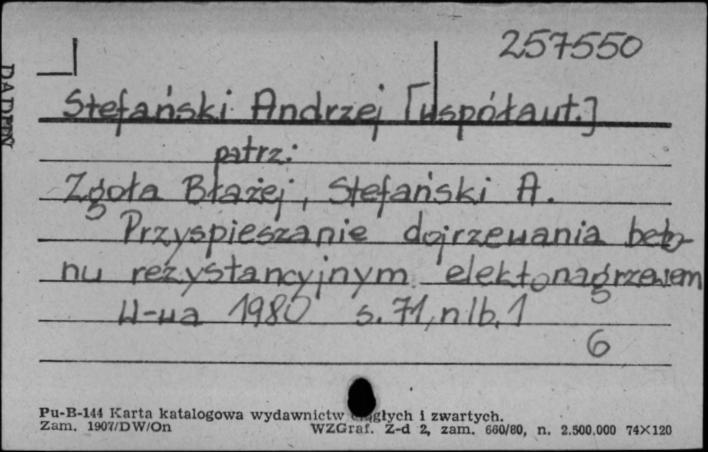 257550
Stefański Andrzej [współaut.]
patrz:
Zgoła Błażej, Stefański A.
Przyspieszanie dojrzewania beto-
nu rezystancyjnym elektonagrzewem
W-wa 1980 s. 71, nlb. 1
6
Pu-B-144 Karta katalogowa wydawnictw ciągłych i zwartych.
Zam. 1907/DW/On WZGraf. Z-d 2, zam. 660/80, n. 2.500.000 74×120